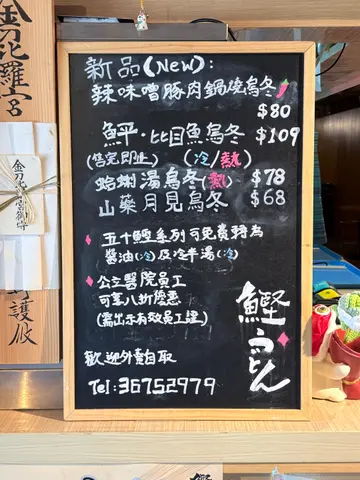 金刀比羅宮
新品(New):
辣味噌豚肉鍋燒烏冬
$80
鮃・比目魚烏冬 $109
(售完即止) (冷/熱)
蛤蜊湯烏冬(熱) $78
山藥月見烏冬 $68
五十鰹系列可免費轉為
醬油(冷)及冷半湯(冷)
公立醫院員工
可享八折優惠
(需出示有效員工證)
鰹うどん
歡迎外賣自取
Tel:36752979